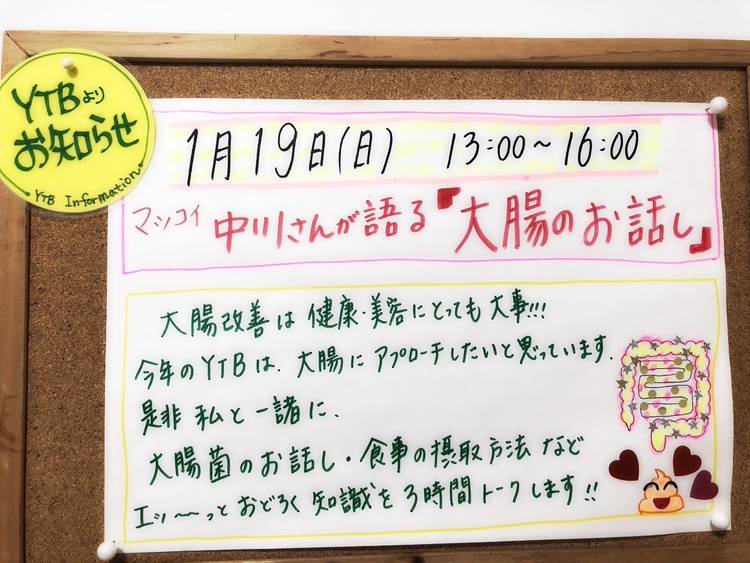 YTBより
お知らせ
YTB Information
1月19日(日) 13:00~16:00
マツコイ 中川さんが語る『大腸のお話し』
大腸改善は健康・美容にとっても大事!!!
今年のYTBは、大腸にアプローチしたいと思っています.
是非 私と一諸に、
大腸菌のお話し・食事の摂取方法など
エッ〜〜っと おどろく 知識を3時間トークします!!